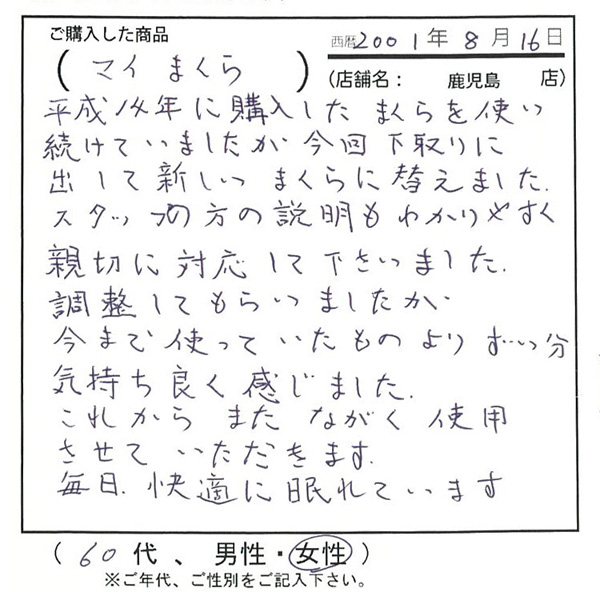 ご購入した商品
西暦2001年8月16日
(マイまくら)
(店舗名: 鹿児島 店)
平成14年に購入したまくらを使い
続けていましたが今回下取りに
出して新しいまくらに替えました.
スタッフの方の説明もわかりやすく
親切に対応して下さいました.
調整してもらいましたが、
今まで使っていたものよりずいぶん
気持ち良く感じました.
これからまたながく使用
させていただきます.
毎日.快適に眠れています
(60代、男性・女性)
※ご年代、ご性別をご記入下さい。